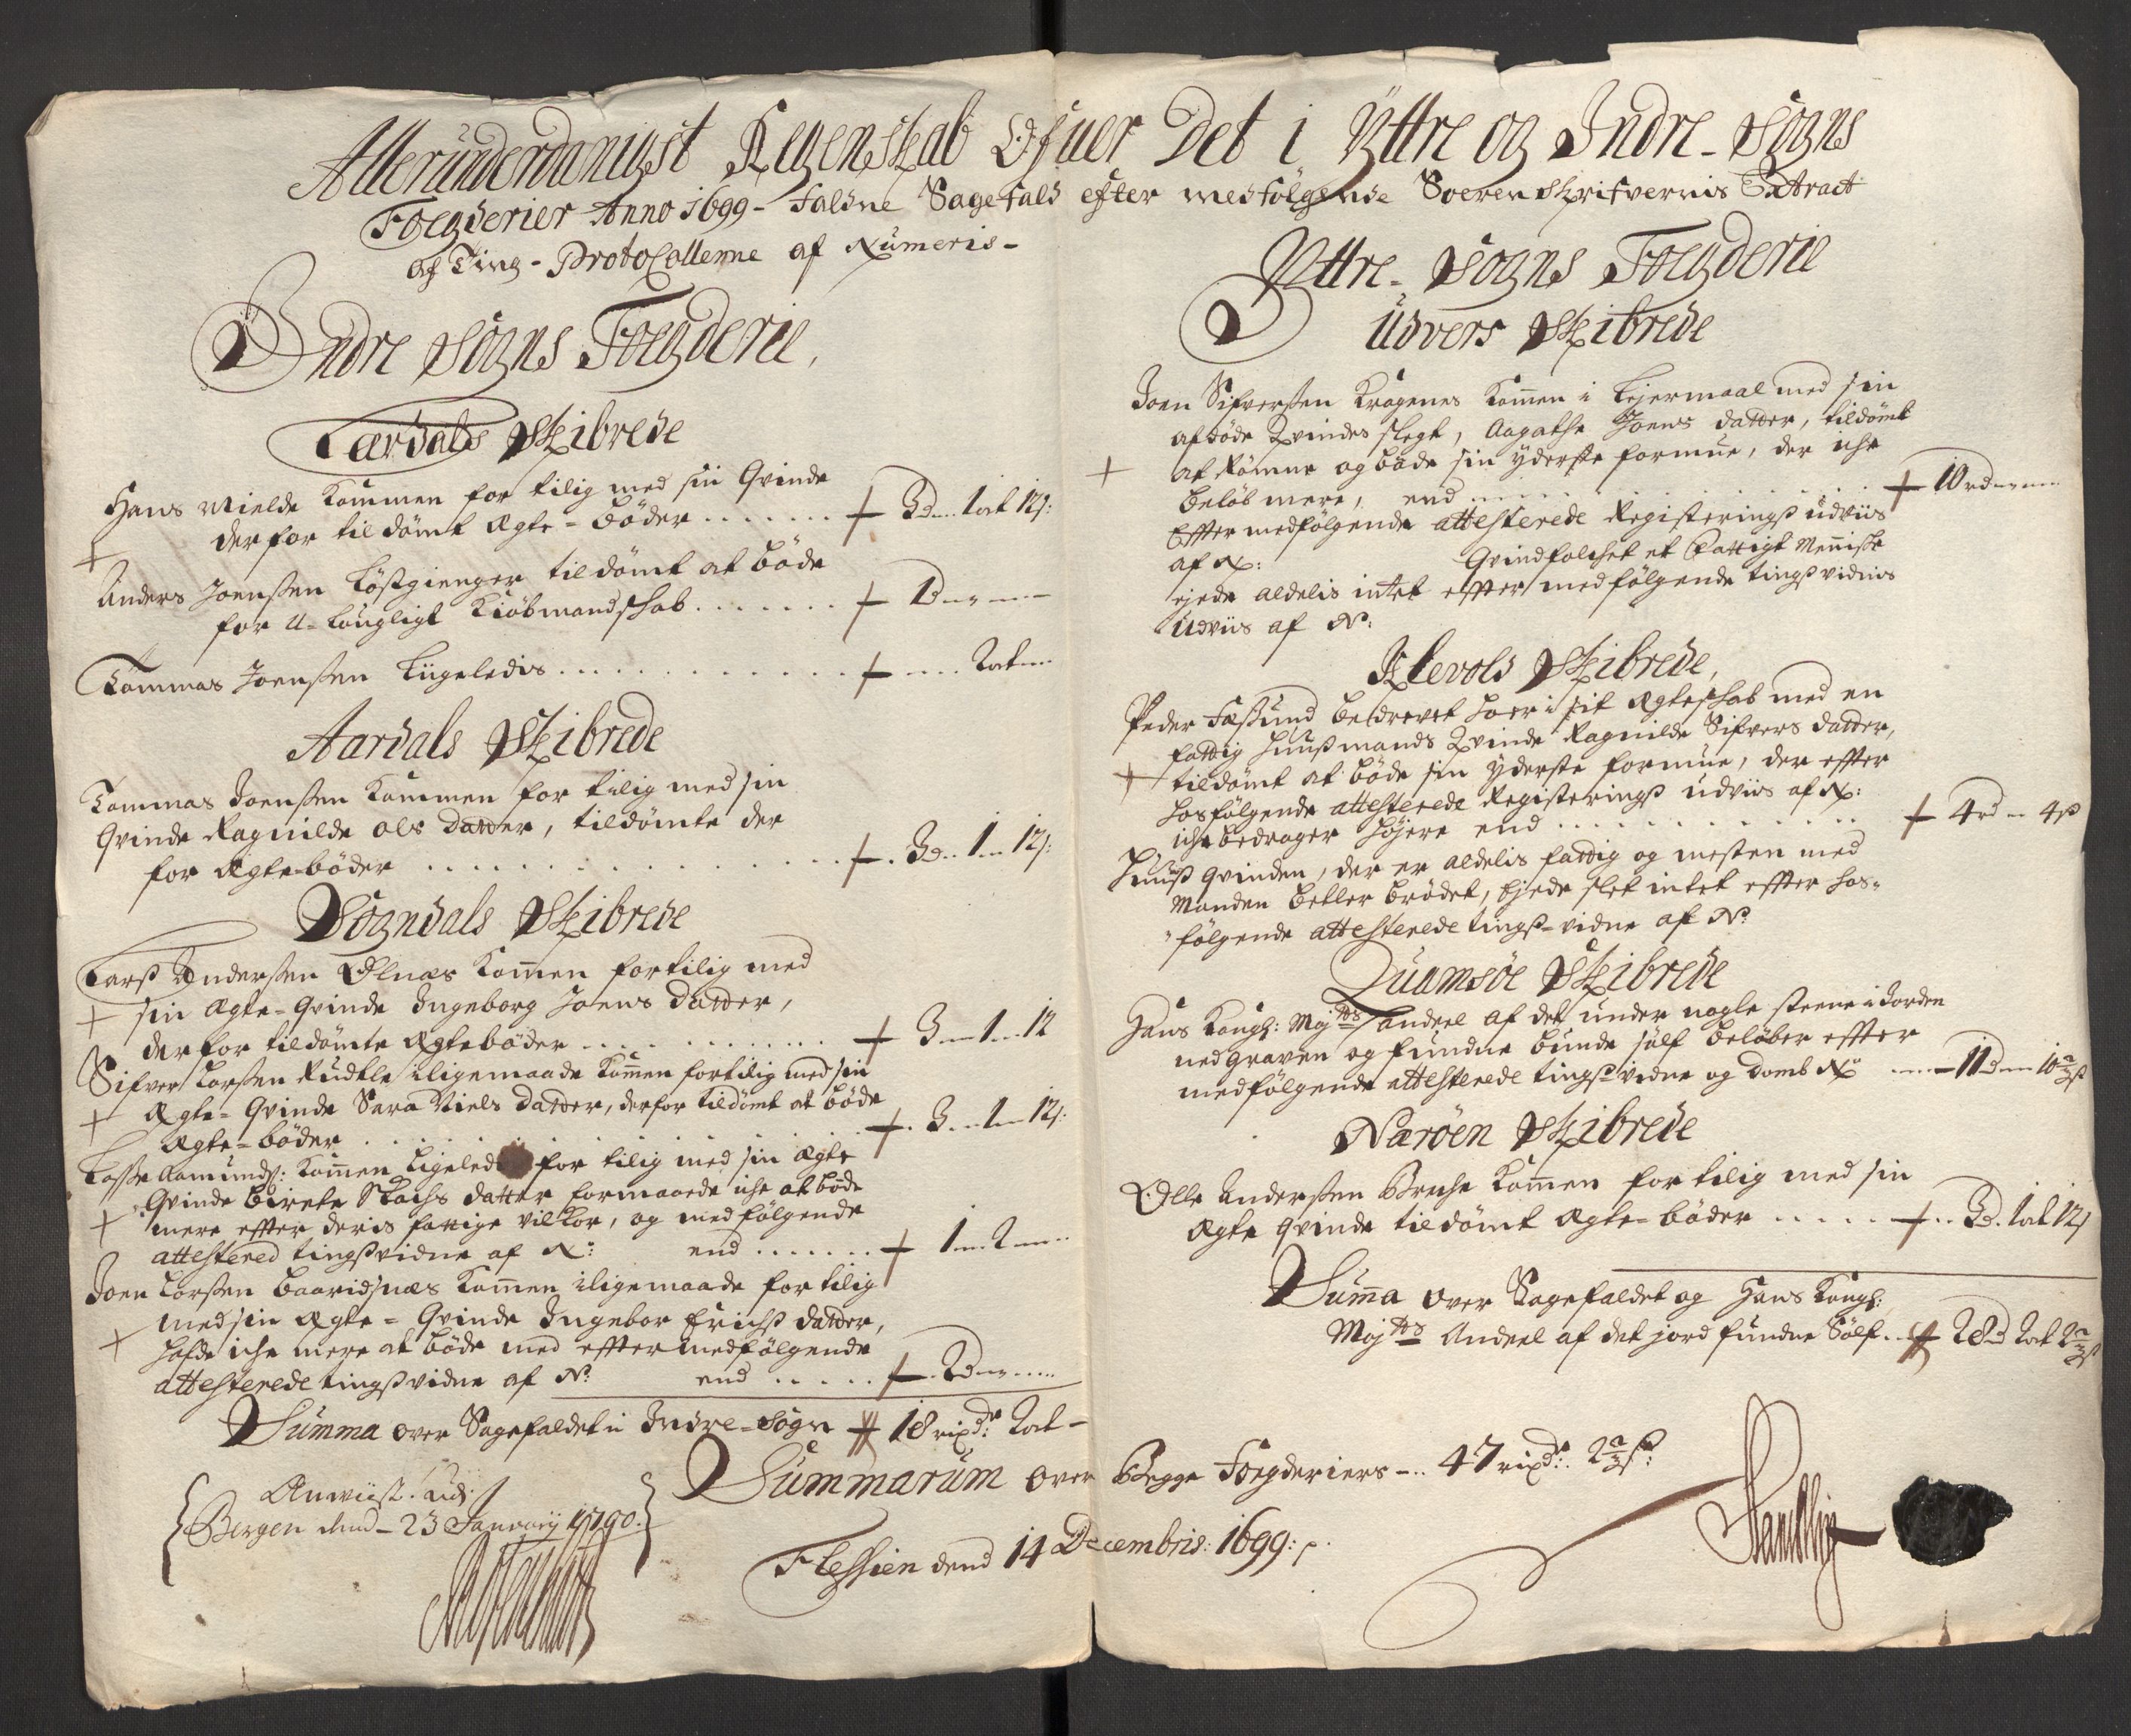 Allerunderdanigst Regenskab Ofuer Det i Yttre og Indre-Sogns
Foegderier Anno 1699 - faldne Sagefald efter medfölgende Soerenskrifvernis Extract
af Ting-Protocollerne af Numeris-
Indre Sogns Foegderie,
Lærdals Skibrede
Hans Mielde kommen for tilig med sin Qvinde
derfor tildömt Ægte-böder ....... 3d 1ort 12s:
Anders Joenssen Löstgienger tildömt at böde
for U-lougligt Kiöbmandskab ....... 1d
Tommas Joenssen liigeledis ............ 2ort
Aardals Skibrede
Tommas Joenssen kommen for tilig med sin
Qvinde Ragnilde Ols datter, tildömte der
for Ægte-böder ............ 3d 1 12s:
Sogndals Skibrede
Larss Anderssen Ølnæs kom̅en for tilig med
sin Ægte-Qvinde Ingeborg Joens datter,
derfor tildömte Ægteböder ............ 3 1 12
Sifver Larssen Rudtle iligemaade kom̅en for tilig med sin
Ægte-Qvinde Sara Niels datter, derfor tildömt at böde
Ægte-böder ............ 3 1 12s:
Lasse Aamunds: kom̅en ligeledis for tilig med sin Ægte
Qvinde Birete datter formaaede iche at böde
mere effter deris fattige vilkor, og medfölgende
attestered tingssvidne af N: end ....... 1 2
Joen Larssen Baaridsnæs kom̅en iligemaade for tilig
med sin Ægte-Qvinde Ingebor Erichss datter,
hafde iche mere at böde med effter medfölgende
attesterede tingssvidne af N: end ..... 2d
Summa over Sagefaldet i Indre-Sogn 18 rixdr: 2ort
Anviist. Rids
Bergen dend 23 January 1700.
Yttre-Sogns Foegderie
Udvers Skibrede
Joen Sifverssen Kragenes kom̅en i Lejermaal med sin
afdöde Qvindes slegt, Aagathe Joens datter, tildömt
at Römme og böde sin yderste formue, der iche
belöb mere, end ....... 10 rd
Effter medfölgende attesterede Registerings udviis
af N: Qvindfolchet et fattigt Men̅iske
ejede aldelis intet effter medfölgende tings vidnes
udviis af N:
Klevols Skibrede,
Peder Fæssund bedrevet hoer i sit Ægteskab med en
fattig huussmands Qvinde Ragnilde Sifvers datter,
tildömt at böde sin yderste formue, der effter
hosfölgende attesterede Registerings udviis af N:
iche bedrager höjere end ............ 4 rd 4s
Huuss Qvinden, der er aldelis fattig og mesten med
Manden betler brödet, Ejede slet intet effter hos-
fölgende attesterede tingss-vidne af N:
Quamsöe Skibrede
Hans Kongl: Mayts andeel af det under nogle steene i Jorden
nedgraven og fundne bunde sölf belöber effter
medfölgende attesterede tings vidne og domb N: 11d 10⅔s
Naröen Skibrede
Olle Anderssen Breche kom̅en for tilig med sin
Ægte Qvinde tildömt Ægte-böder ..... 3d. 1ort 12s
Sum̅a over Sagefaldet og Hans Kongl:
Mayts Andeel af det jord fundne Sölf. 28d 2ort 2⅔s
Summarum over Begge Foegderiers - 47 rixdr: 2⅔s:
Flessien dend 14 Decembris: 1699: